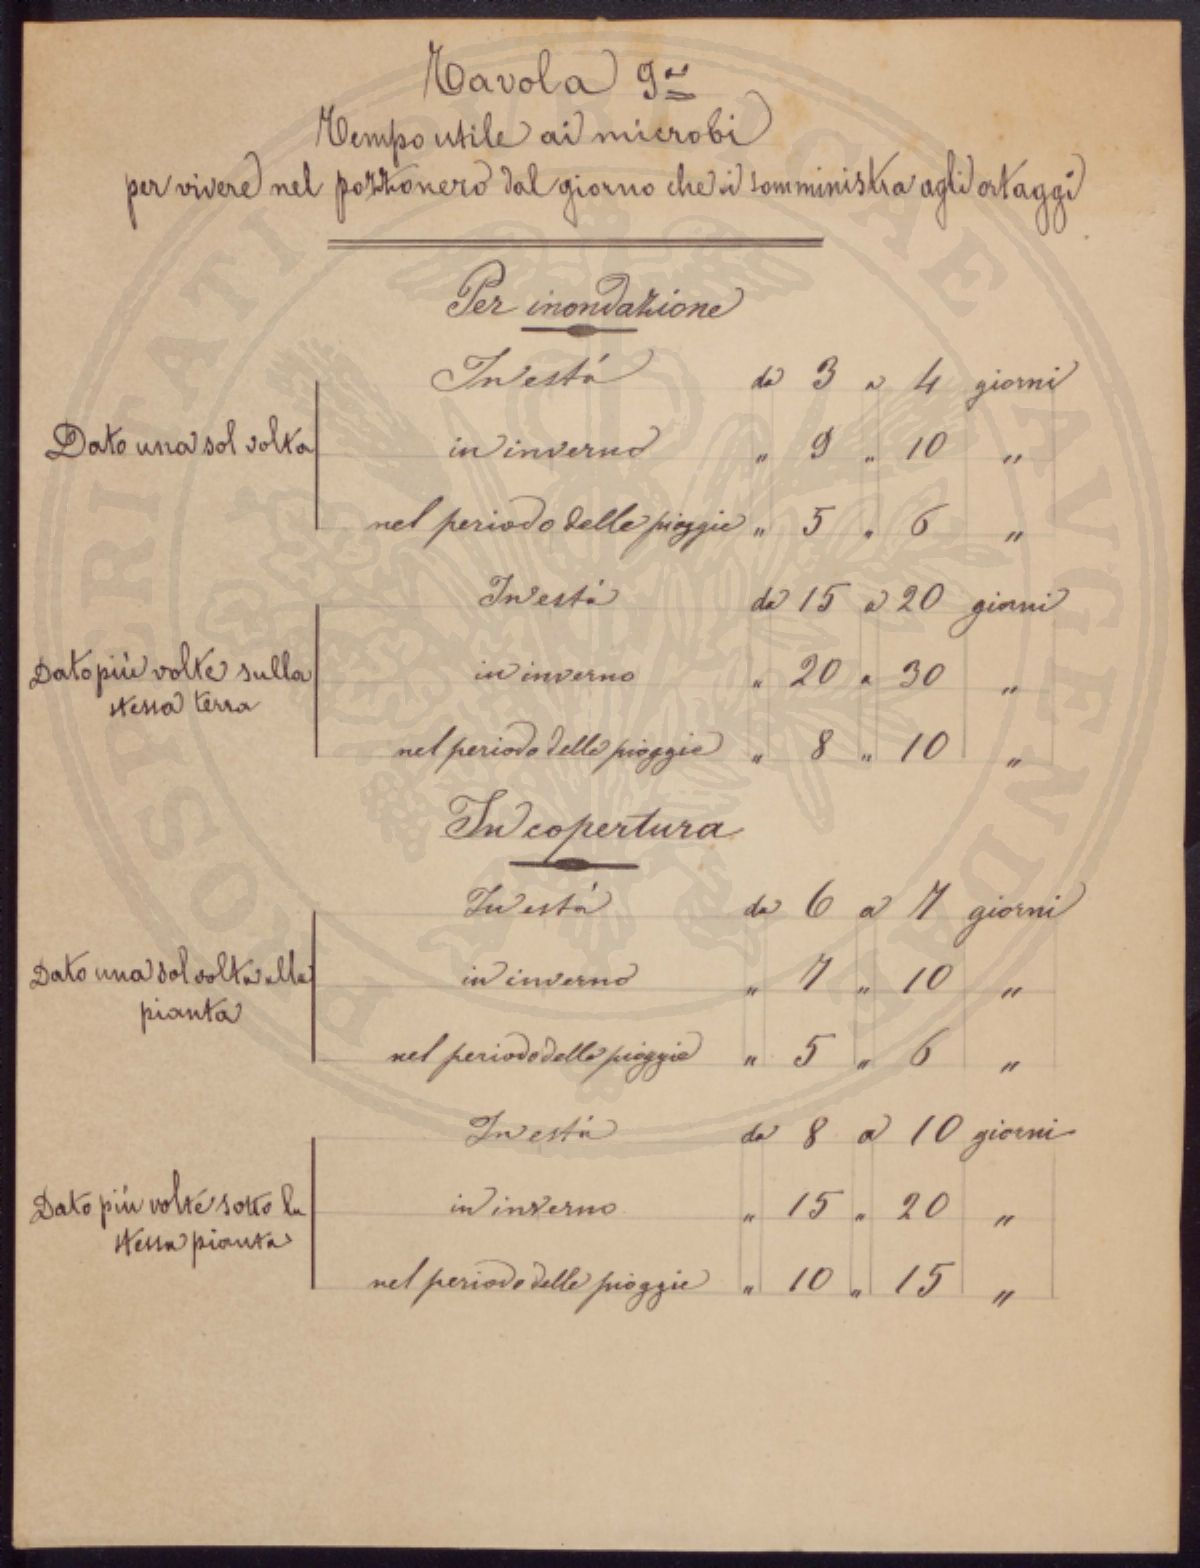 Tavola 9ª
Tempo utile ai microbi
per vivere nel pozzonero dal giorno che si somministra agli ortaggi
Per inondazione
In està da 3 a 4 giorni
Dato una sol volta in inverno " 9 " 10 "
nel periodo delle pioggie " 5 " 6 "
In està da 15 a 20 giorni
Dato più volte sulla in inverno " 20 " 30 "
stessa terra
nel periodo delle pioggie " 8 " 10 "
In copertura
In està da 6 a 7 giorni
Dato una sol volta alla in inverno " 7 " 10 "
pianta
nel periodo delle pioggie " 5 " 6 "
In està da 8 a 10 giorni
Dato più volte sotto la in inverno " 15 " 20 "
stessa pianta
nel periodo delle pioggie " 10 " 15 "
PROSPERITATI PUBLICAE AVGENDAE